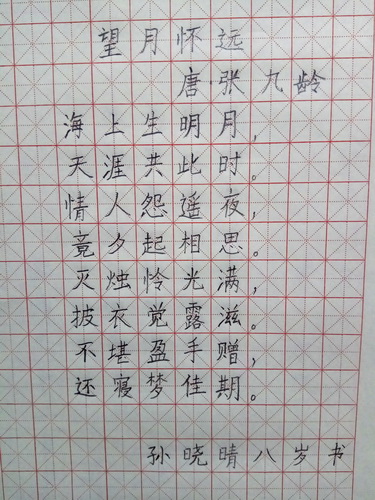 望月怀远
唐张九龄
海上生明月，
天涯共此时。
情人怨遥夜，
竟夕起相思。
灭烛怜光满，
披衣觉露滋。
不堪盈手赠，
还寝梦佳期。
孙晓晴八岁书